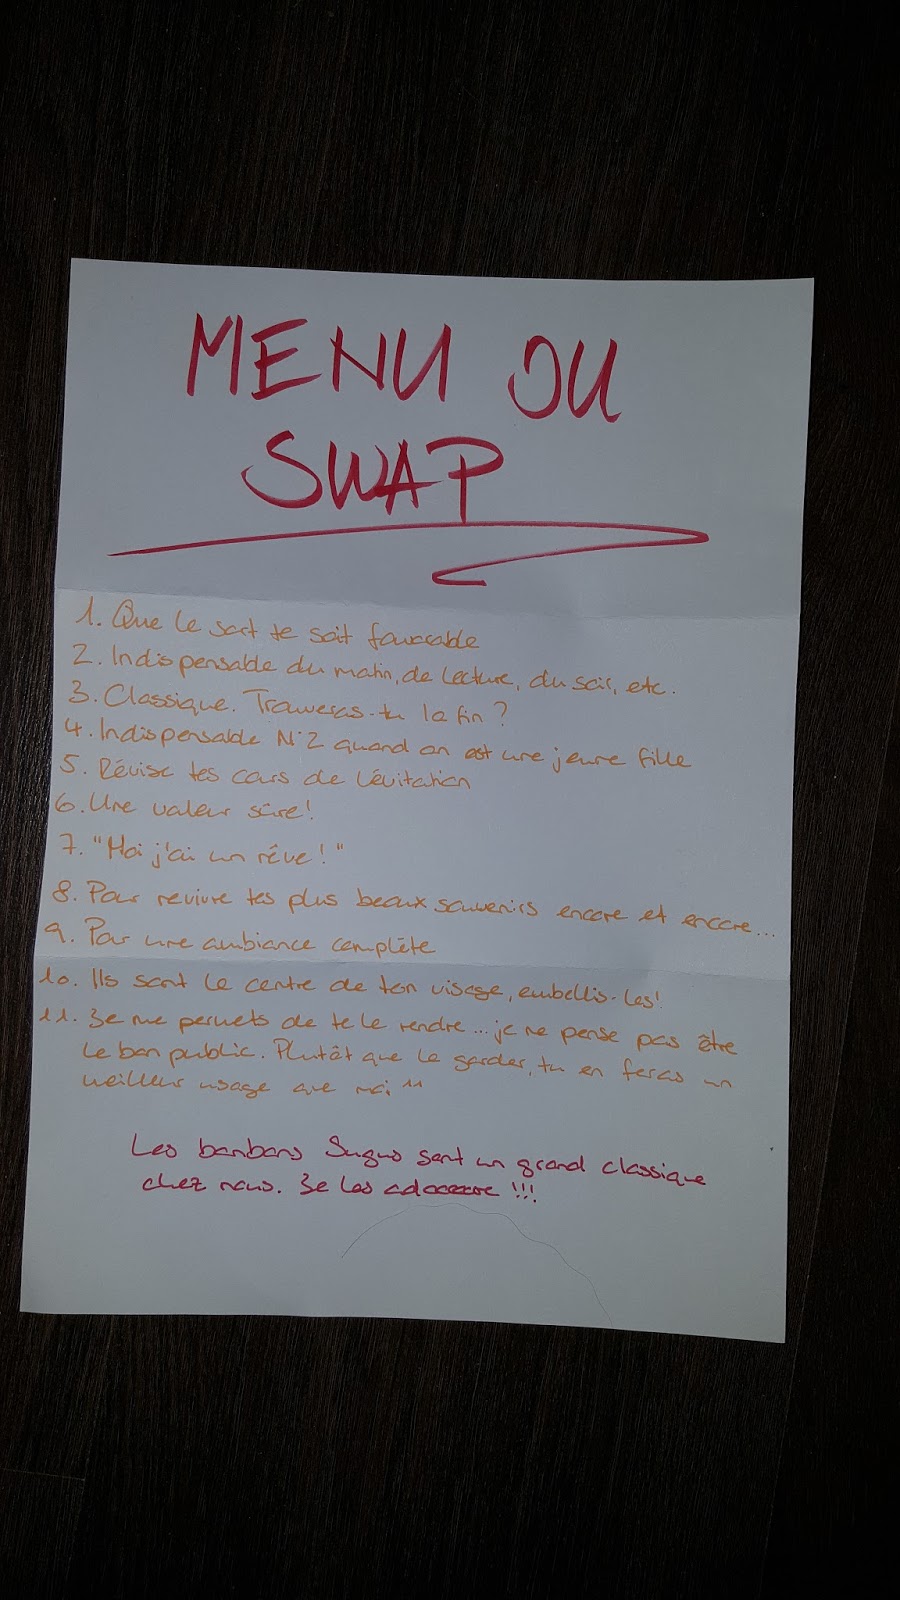 MENU DU
SWAP
1. Que le sort te soit favorable
2. Indispensable du matin, de lecture, du soir, etc.
3. Classique. Trouveras-tu la fin ?
4. Indispensable N°2 quand on est une jeune fille
5. Révise tes cours de Lévitation
6. Une valeur sûre!
7. "Moi j'ai un rêve!"
8. Pour revivre tes plus beaux souvenirs encore et encore...
9. Pour une ambiance complète
10. Ils sont le centre de ton visage, embellis-les!
11. Je me permets de te le rendre... je ne pense pas être
le bon public. Plutôt que le garder, tu en feras un
meilleur usage que moi ^^
Les bonbons Sugus sont un grand classique
chez nous. Je les adooooore !!!